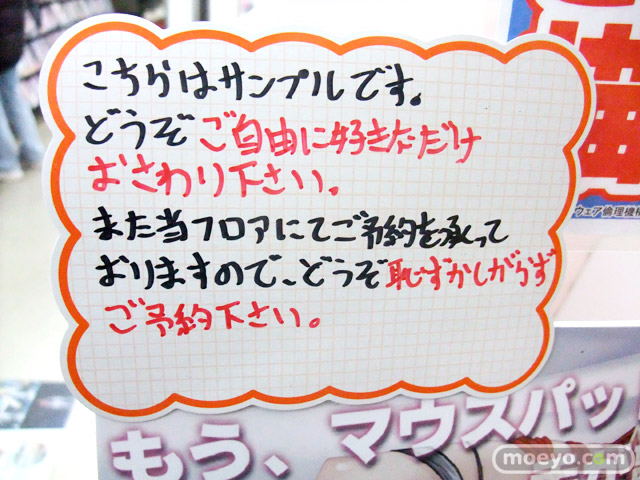 こちらはサンプルです。
どうぞご自由に好きなだけ
おさわり下さい。
また当フロアにてご予約を承って
おりますので、どうぞ恥ずかしがらず
ご予約下さい。
ウェア倫理機構
もう、マウスパッ
moeyo.com